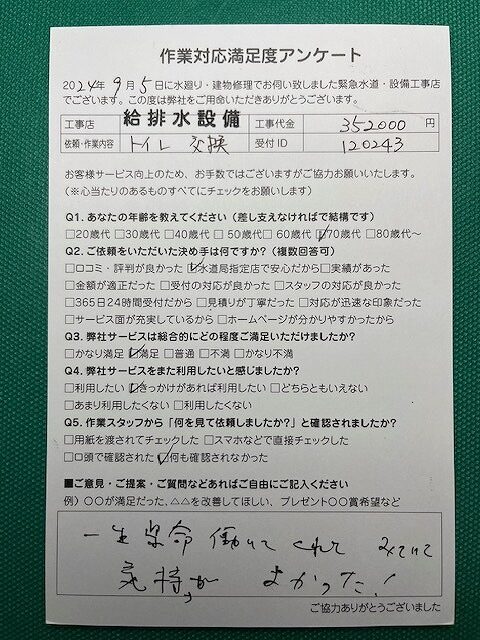 作業対応満足度アンケート
2024年9月5日に水廻り・建物修理でお伺い致しました緊急水道・設備工事店
でございます。この度は弊社をご用命いただきありがとうございます。
工事店 給排水設備 工事代金 352000 円
依頼・作業内容 トイレ 交換 受付 ID 120243
お客様サービス向上のため、お手数ではございますがご協力お願いいたします。
(※心当たりのあるものすべてにチェックをお願いします)
Q1. あなたの年齢を教えてください(差し支えなければで結構です)
□20歳代 □30歳代 □40歳代 □50歳代 □60歳代 ☑70歳代 □80歳代～
Q2. ご依頼をいただいた決め手は何ですか?(複数回答可)
□口コミ・評判が良かった ☑水道局指定店で安心だから □実績があった
□金額が適正だった □受付の対応が良かった □スタッフの対応が良かった
□365日24時間受付だから □見積りが丁寧だった □対応が迅速な印象だった
□サービス面が充実しているから □ホームページが分かりやすかったから
Q3. 弊社サービスは総合的にどの程度ご満足いただけましたか?
□かなり満足 ☑満足 □普通 □不満 □かなり不満
Q4. 弊社サービスをまた利用したいと感じましたか?
□利用したい ☑きっかけがあれば利用したい □どちらともいえない
□あまり利用したくない □利用したくない
Q5. 作業スタッフから「何を見て依頼しましたか?」と確認されましたか?
□用紙を渡されてチェックした □スマホなどで直接チェックした
□口頭で確認された ☑何も確認されなかった
■ご意見・ご提案・ご質問などあればご自由にご記入ください
例)〇〇が満足だった、△△を改善してほしい、プレゼント〇〇賞希望など
一生県命 働いて くれて みていて
気持が よかった!
ご協力ありがとうございました